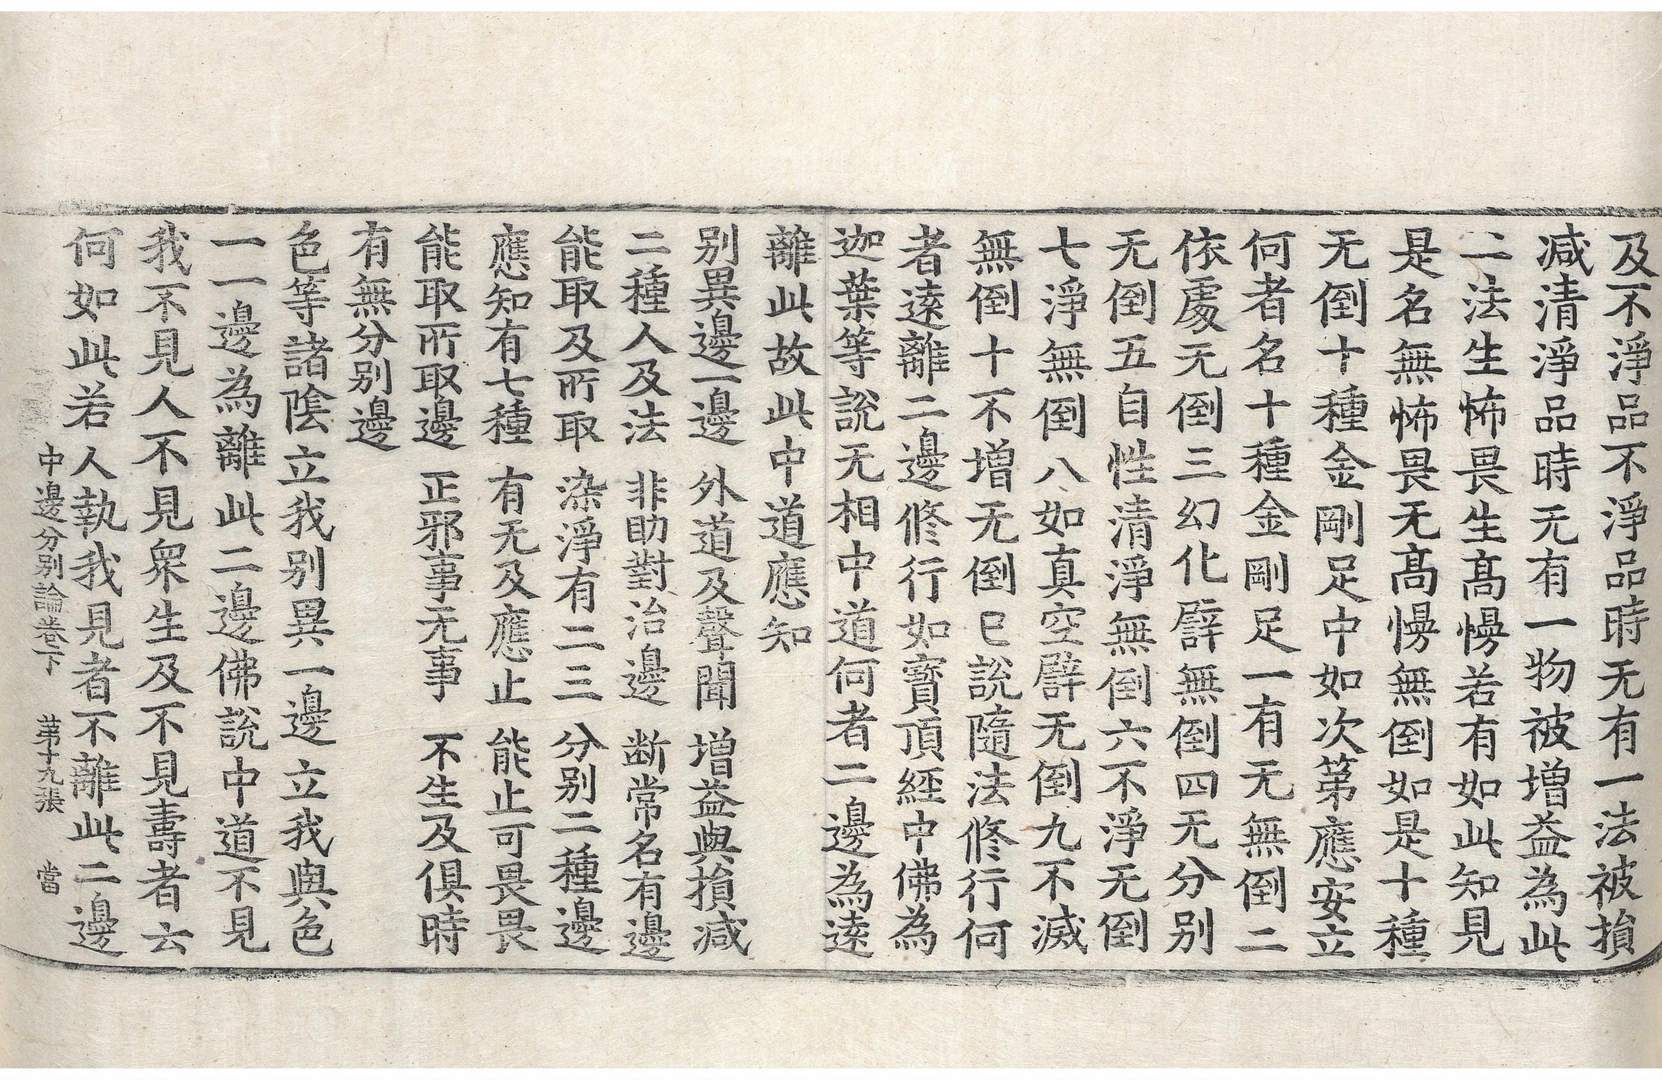 及不淨品不淨品時无有一法被損
減清淨品時无有一物被增益為此
二法生怖畏生髙慢若有如此知見
是名無怖畏无髙慢無倒如是十種
无倒十種金剛足中如次第應安立
何者名十種金剛足一有无無倒二
依處无倒三幻化譬無倒四无分別
无倒五自性清淨無倒六不淨无倒
七淨無倒八如真空譬无倒九不滅
無倒十不增无倒已說隨法修行何
者遠離二邊修行如寶頂經中佛為
迦葉等說无相中道何者二邊為遠
離此故此中道應知
別異邊一邊 外道及聲聞 增益與損減
二種人及法 非助對治邊 断常名有邊
能取及所取 染淨有二三 分別二種邊
應知有七種 有无及應止 能止可畏畏
能取所取邊 正邪事无事 不生及俱時
有無分別邊
色等諸陰立我別異一邊立我與色
一一邊為離此二邊佛說中道不見
我不見人不見衆生及不見壽者云
何如此若人執我見者不離此二邊
中邊分別論卷下 苐十九張 當